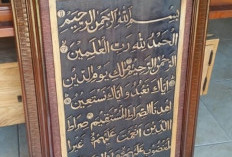 بسم الله الرحمن الرحيم
الحمد لله رب العلمين
الرحمن الرحيم ملك يوم الدين
اياك نعبد واياك نستعين
اهدنا الصراط المستقيم صراط
الذين انعمت عليهم غير
المغضوب عليهم